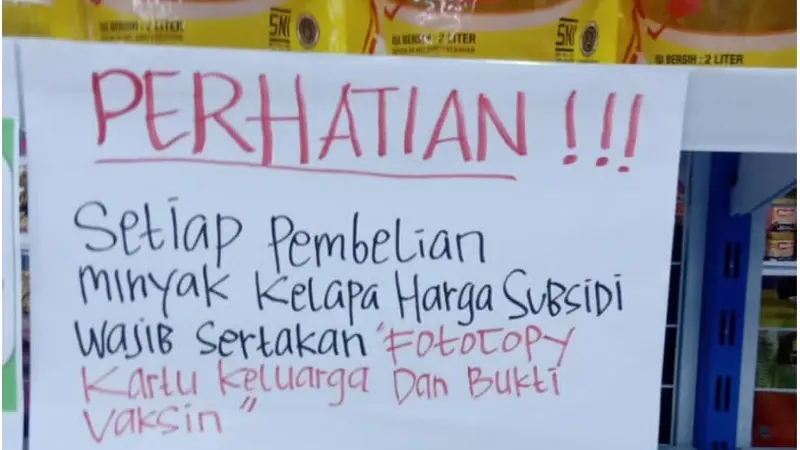 SNI
ISI BERSIH : 2 LITER
ISI BERSIH : 2 LITER
SNI
ISI BERSIH : 2 LITER
PERHATIAN !!!
Setiap Pembelian
Minyak Kelapa Harga Subsidi
Wajib Sertakan "Fotocopy
Kartu Keluarga Dan Bukti
Vaksin"